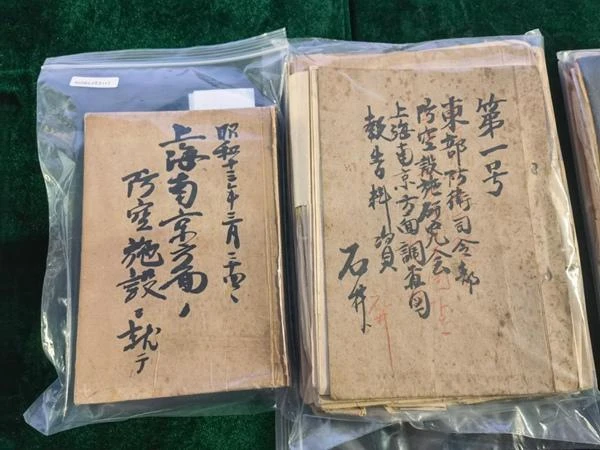 昭和十三年三月
上海南京方面ノ
防空施設ニ就テ
第一号
東部防衛司令部
防空設施研究会
上海南京方面調査団
報告
石井
石井